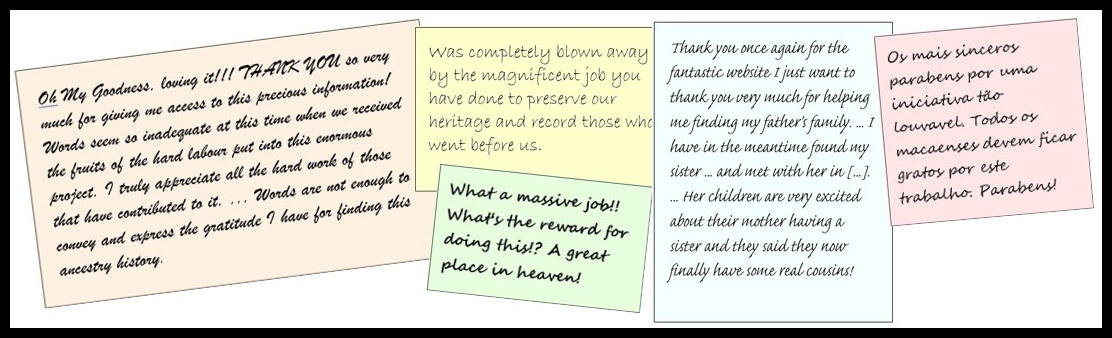 Oh My Goodness, loving it!!! THANK YOU so very
much for giving me access to this precious information!
Words seem so inadequate at this time when we received
the fruits of the hard labour put into this enormous
project. I truly appreciate all the hard work of those
that have contributed to it. ... Words are not enough to
convey and express the gratitude I have for finding this
ancestry history.
Was completely blown away
by the magnificent job you
have done to preserve our
heritage and record those who
went before us.
What a massive job!!
What's the reward for
doing this!? A great
place in heaven!
Thank you once again for the
fantastic website I just want to
thank you very much for helping
me finding my father's family. ... I
have in the meantime found my
sister ... and met with her in [...].
... Her children are very excited
about their mother having a
sister and they said they now
finally have some real cousins!
Os mais sinceros
parabens por uma
iniciativa tão
louvavel. Todos os
macaenses devem ficar
gratos por este
trabalho. Parabens!